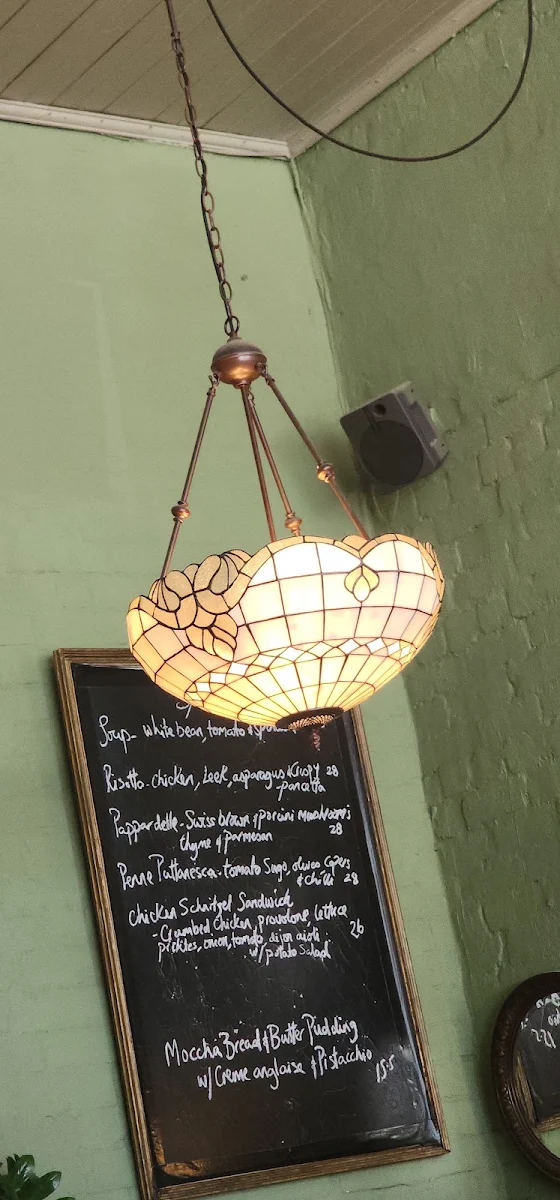 Soup- white bean, tomato &
Risotto- chicken, Leek, asparagus & Crispy 28
-pancetta
Pappardelle- Swiss brown & porcini mushrooms
thyme & parmesan 28
Penne Puttanesca- tomato Sugo, olives Capers
& Chilli 28
Chicken Schnitzel Sandwich
- Crumbed Chicken, provolone, lettuce
pickles, onion, tomato, dijon aioli 26
w/ potato Salad
Moccha Bread & Butter Pudding
w/ Creme anglaise & Pistacchio 15.5